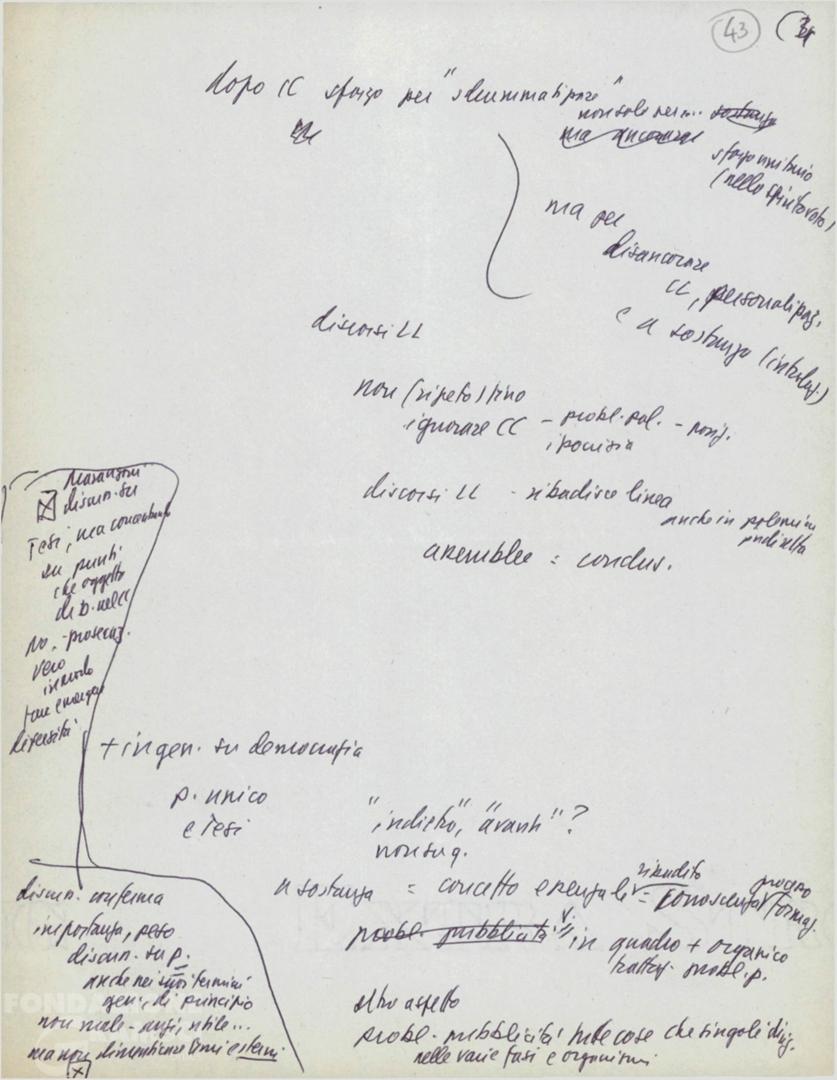 43
dopo CC sforzo per "sdrammatizzare"
non solo per ...
sforzo unitario
(nello spirito voto)
ma per
disancorare
LL, personalizaz.
e a sostanza (interlog.)
discorsi LL
non (ripeto)
ignorare CC - probl. pol. - posiz.
ipocrisia
discorsi LL - ribadisce linea
anche in polemica
indiretta
assemblee = conclus.
discuss. su
Tesi, ma concentrando
su punti
che oggetto
di D. nel CC
No, - prosecuz.
vero
in modo
fare emergere
diversità
+ in gen. su democrazia
p. unico
e Tesi
"indietro", "avanti"?
non su q.
a sostanza = concetto essenziale ribadito = conoscenza processo formaz.
probl. pubblicità in quadro + organico
trattaz. probl. p.
altro aspetto
probl. pubblicità tutte cose che singoli dirig.
nelle varie fasi e organismi
discuss. conferma
importanza, peso
discuss. su p.
anche nei suoi termini
gen. di principio
non male - anzi, utile...
ma non dimenticare temi esterni
FONDAZIONE